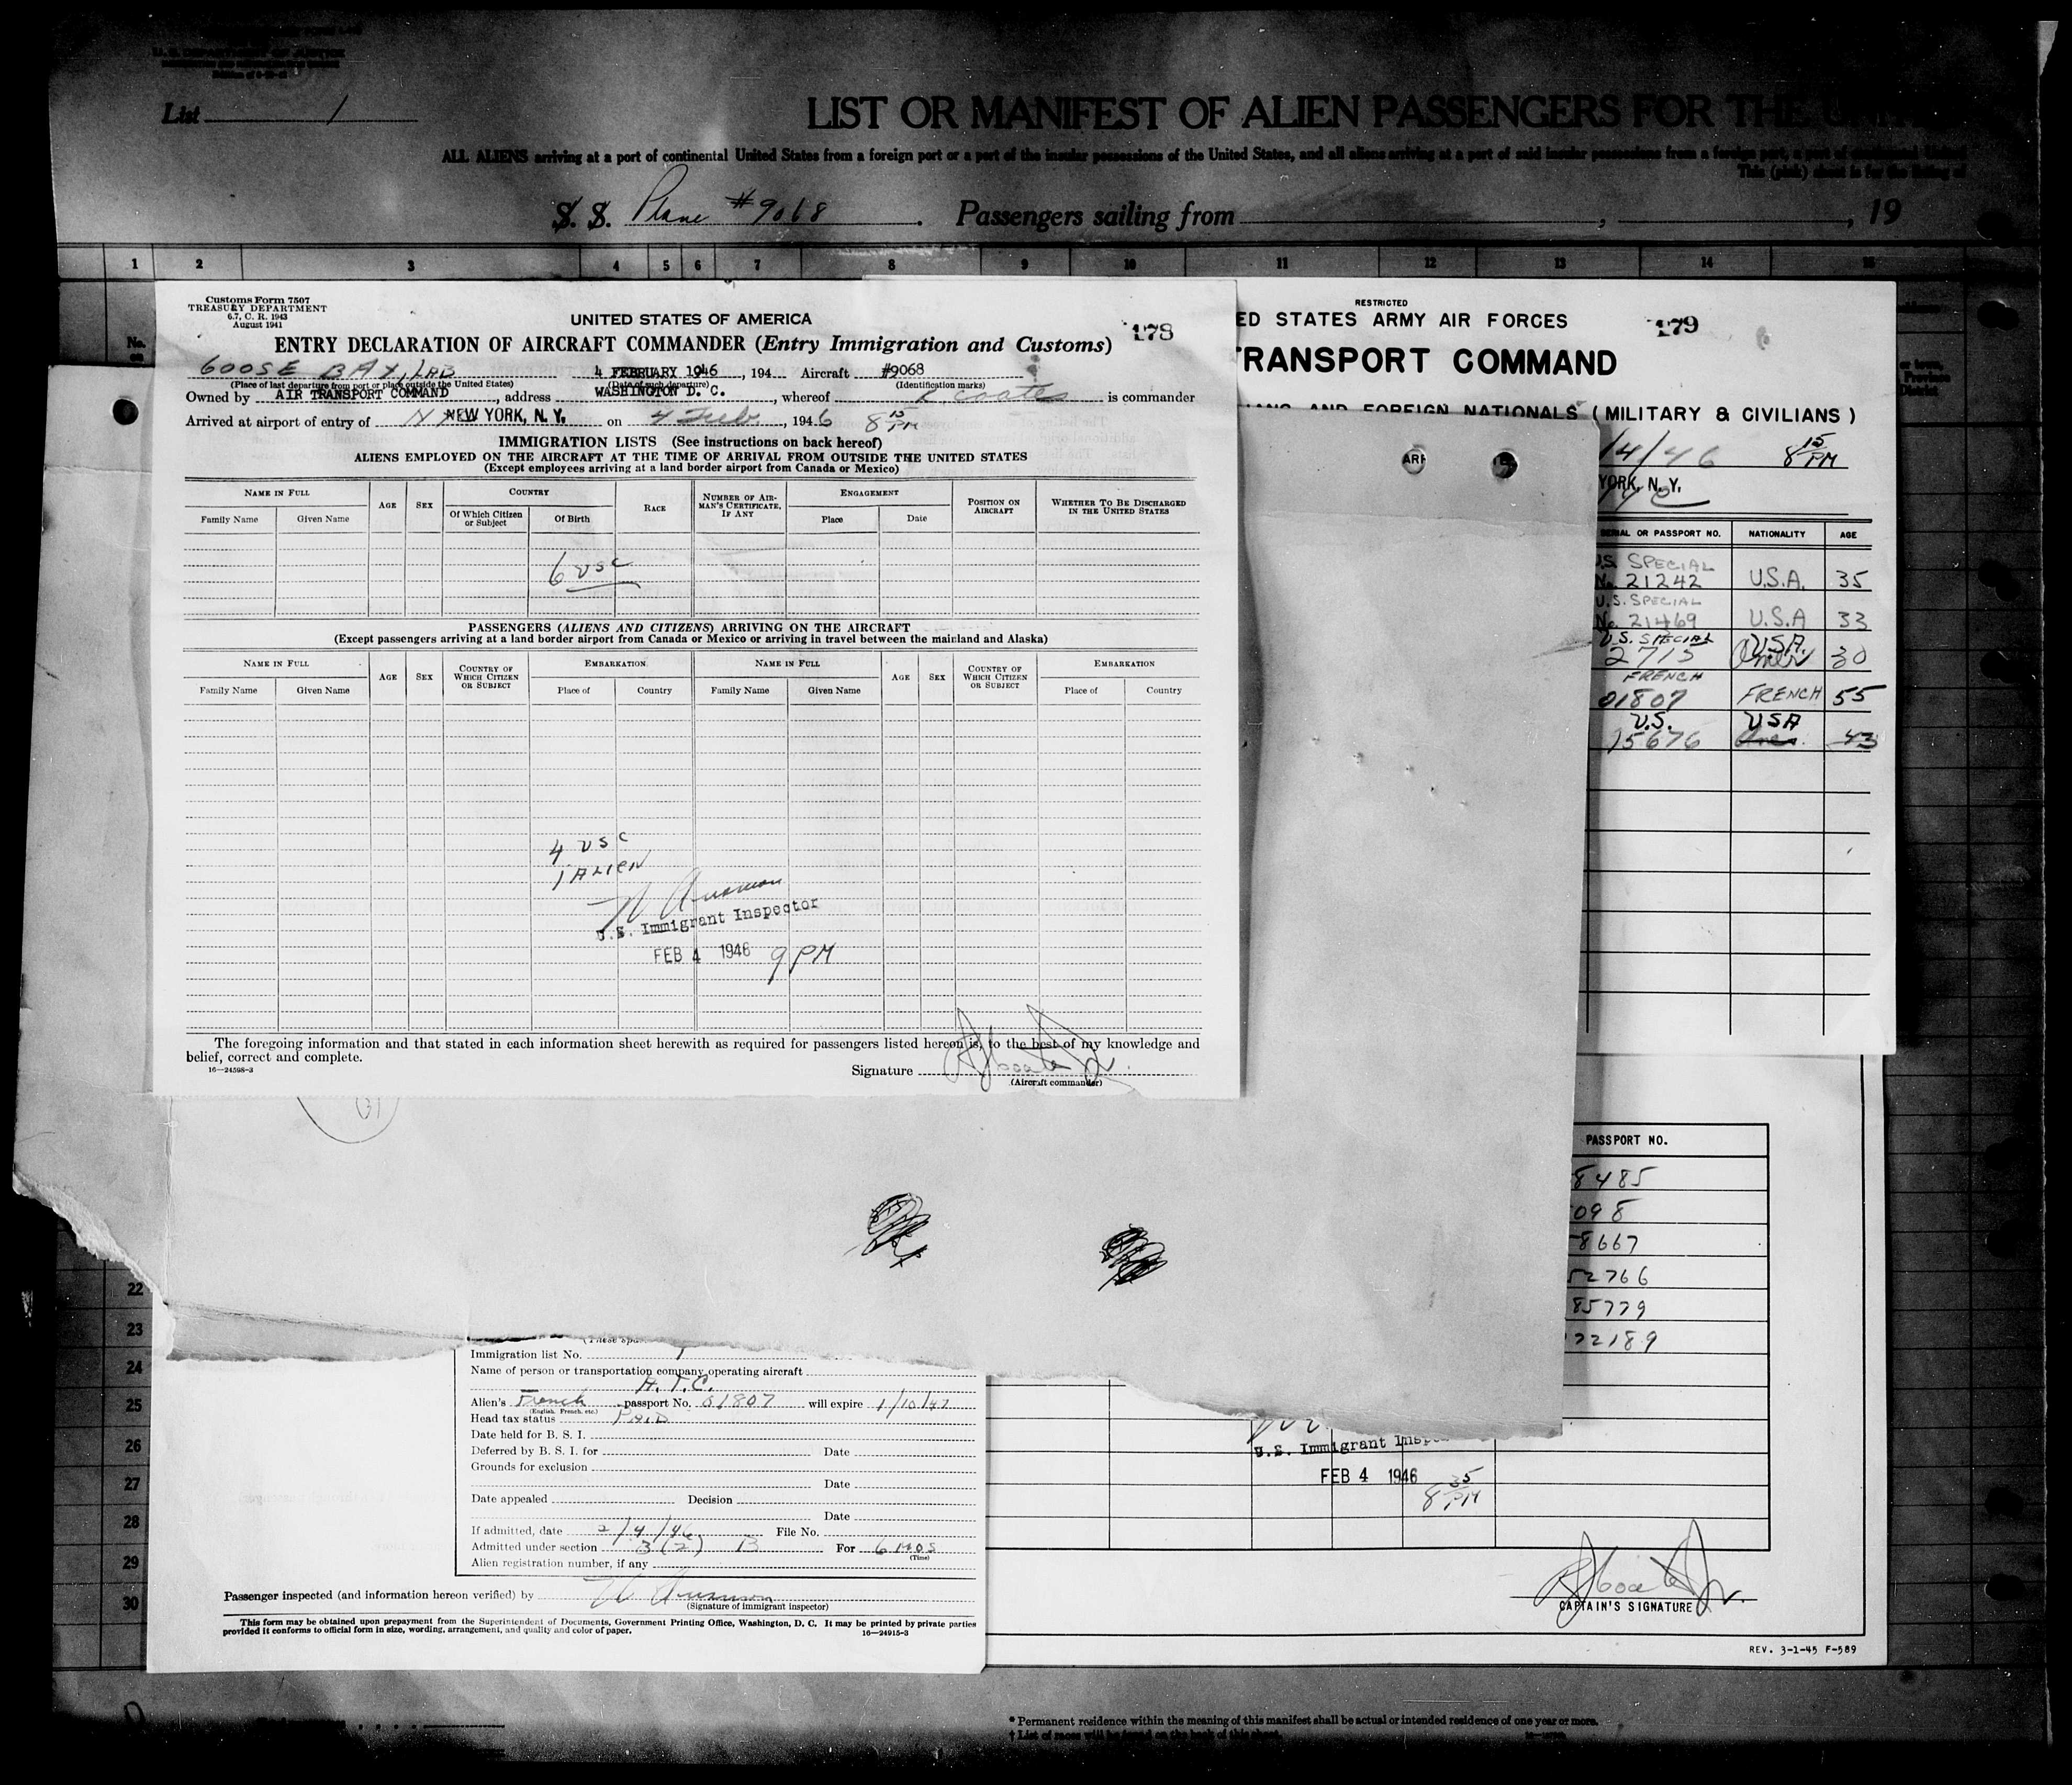 U. S. DEPARTMENT OF JUSTICE
List 1
LIST OR MANIFEST OF ALIEN PASSENGERS FOR THE UNITED
ALL ALIENS arriving at a port of continental United States from a foreign port or a port of the insular possessions of the United States, and all aliens arriving at a port of said insular possessions from a foreign port, a port of continental United
This (pink) sheet is for the listing of
S. S. Plane #9068. Passengers sailing from , , 19
1 2 3 4 5 6 7 8 9 10 11 12 13 14 15
No.
on
Customs Form 7507
TREASURY DEPARTMENT
6.7, C. R. 1943
August 1941
178
UNITED STATES OF AMERICA
ENTRY DECLARATION OF AIRCRAFT COMMANDER (Entry Immigration and Customs)
GOOSE BAY, LAB 4 FEBRUARY 1946, 194 Aircraft #9068
(Place of last departure from port or place outside the United States) (Date of such departure) (Identification marks)
Owned by AIR TRANSPORT COMMAND, address WASHINGTON D. C., whereof R Coates is commander
Arrived at airport of entry of NEW YORK, N. Y. on 4 Feb, 1946 8 15 PM
IMMIGRATION LISTS (See instructions on back hereof)
ALIENS EMPLOYED ON THE AIRCRAFT AT THE TIME OF ARRIVAL FROM OUTSIDE THE UNITED STATES
(Except employees arriving at a land border airport from Canada or Mexico)
NAME IN FULL AGE SEX COUNTRY RACE NUMBER OF AIRMAN'S CERTIFICATE, IF ANY ENGAGEMENT POSITION ON AIRCRAFT WHETHER TO BE DISCHARGED IN THE UNITED STATES
Family Name Given Name Of Which Citizen or Subject Of Birth Place Date
6 USC
PASSENGERS (ALIENS AND CITIZENS) ARRIVING ON THE AIRCRAFT
(Except passengers arriving at a land border airport from Canada or Mexico or arriving in travel between the mainland and Alaska)
NAME IN FULL AGE SEX COUNTRY OF WHICH CITIZEN OR SUBJECT EMBARKATION NAME IN FULL AGE SEX COUNTRY OF WHICH CITIZEN OR SUBJECT EMBARKATION
Family Name Given Name Place of Country Family Name Given Name Place of Country
4 USC
1 ALIEN
U.S. Immigrant Inspector
FEB 4 1946 9 PM
The foregoing information and that stated in each information sheet herewith as required for passengers listed hereon is, to the best of my knowledge and
belief, correct and complete.
16—24598-3
Signature
(Aircraft commander)
RESTRICTED
ED STATES ARMY AIR FORCES
179
TRANSPORT COMMAND
AND FOREIGN NATIONALS (MILITARY & CIVILIANS)
/4/46 8 15 PM
YORK, N. Y.
SERIAL OR PASSPORT NO. NATIONALITY AGE
U.S. SPECIAL
No. 21242 U.S.A. 35
U.S. SPECIAL
No. 21469 U.S.A 33
U.S. SPECIAL U.S.A.
2715 30
FRENCH
01807 FRENCH 55
U.S. USA
15676 43
PASSPORT NO.
8485
098
8667
52766
85779
22189
U.S. Immigrant Insp
FEB 4 1946
8 35 PM
CAPTAIN'S SIGNATURE
REV. 3-1-45 F-589
22
23
24
25
26
27
28
29
30
Immigration list No. 1
Name of person or transportation company operating aircraft
A. T. C.
Alien's French passport No. 01807 will expire 1/10/47
(English, French, etc.)
Head tax status Paid
Date held for B. S. I.
Deferred by B. S. I. for Date
Grounds for exclusion
Date
Date appealed Decision
Date
If admitted, date 2/4/46 File No.
Admitted under section 3 (2) B For 6 MOS
(Time)
Alien registration number, if any
Passenger inspected (and information hereon verified) by
(Signature of immigrant inspector)
This form may be obtained upon prepayment from the Superintendent of Documents, Government Printing Office, Washington, D. C. It may be printed by private parties
provided it conforms to official form in size, wording, arrangement, and quality and color of paper.
16—24915-3
* Permanent residence within the meaning of this manifest shall be actual or intended residence of one year or more.
† List of races will be found on the back of this sheet.